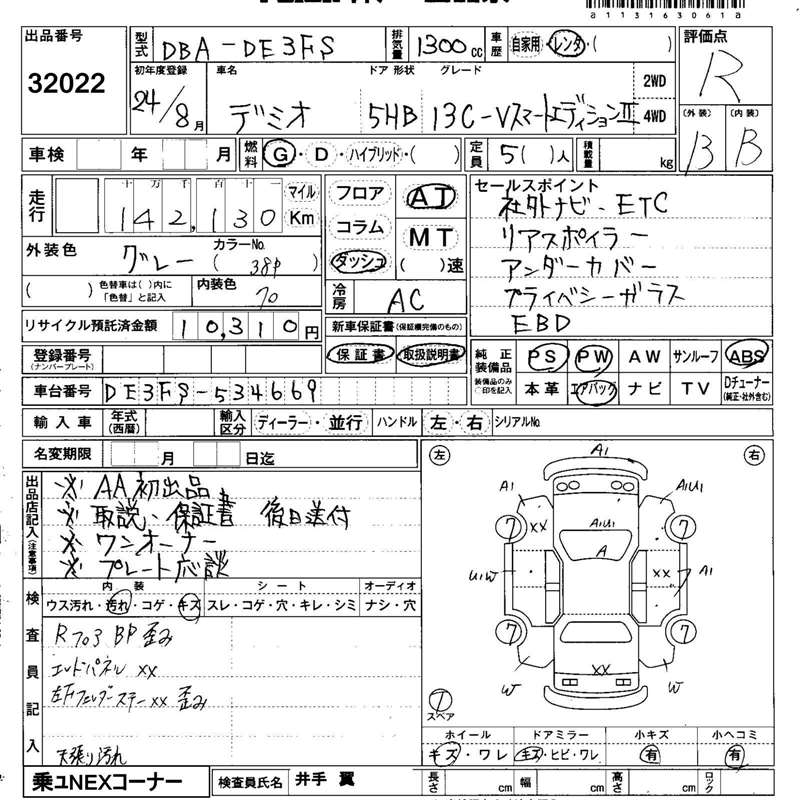 出品番号 32022
型式 DBA-DE3FS 排気量 1300cc 車歴 自家用・レンタ・( )
811316306618
評価点 R
初年度登録 24/8月 車名 デミオ ドア 形状 5HB グレード 13C-Vスマートエディション II 2WD 4WD
(外装) B (内装) B
車検 年 月 燃料 G・D・ハイブリッド・( ) 定員 5( )人 積載量 kg
走行 十万千百十一 142,130 マイル Km
フロア コラム ダッシュ
AT MT ( )速
セールスポイント
社外ナビ・ETC
リアスポイラー
アンダーカバー
プライベシーガラス
EBD
外装色 グレー カラーNo. ( 38P )
( ) 色替車は( )内に「色替」と記入 内装色 70
冷房 AC
リサイクル預託済金額 10,310円
新車保証書(保証欄完備のもの)
保証書・取扱説明書
登録番号 (ナンバープレート)
純正装備品 装備品のみ○印を記入
PS PW AW サンルーフ ABS
本革 エアバック ナビ TV Dチューナー(純正・社外含む)
車台番号 DE3FS-534669
輸入車 年式(西暦) 輸入区分 ディーラー・並行 ハンドル 左・右 シリアルNo.
名変期限 月 日迄
出品店記入(注意事項)
※ AA初出品
※ 取説、保証書 後日送付
※ ワンオーナー
※ プレート応談
検査員記入
内装 シート オーディオ
ウス汚れ・汚れ・コゲ・キズ スレ・コゲ・穴・キレ・シミ ナシ・穴
R703 BP歪み
エンドパネル XX
左Fフェンダーステー XX 歪み
天張り汚れ
左 右
A1
A1 A1U1
7 XX A1U1 7
A
UIW XX A1
7 7
XX
W W
1 スペア
ホイール ドアミラー 小キズ 小ヘコミ
キズ・ワレ キズ・ヒビ・ワレ 有 有
乗ュNEXコーナー
検査員氏名 井手 翼
長さ cm 幅 cm 高さ cm ロック